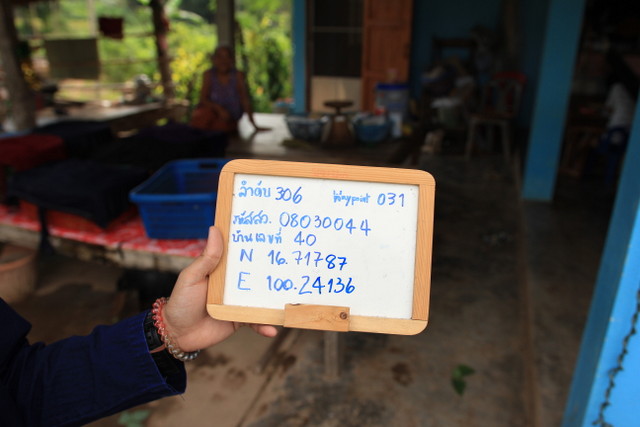 ลำดับ 306 Waypoint 031
รหัสสว. 08030044
บ้านเลขที่ 40
N 16.71787
E 100.24136